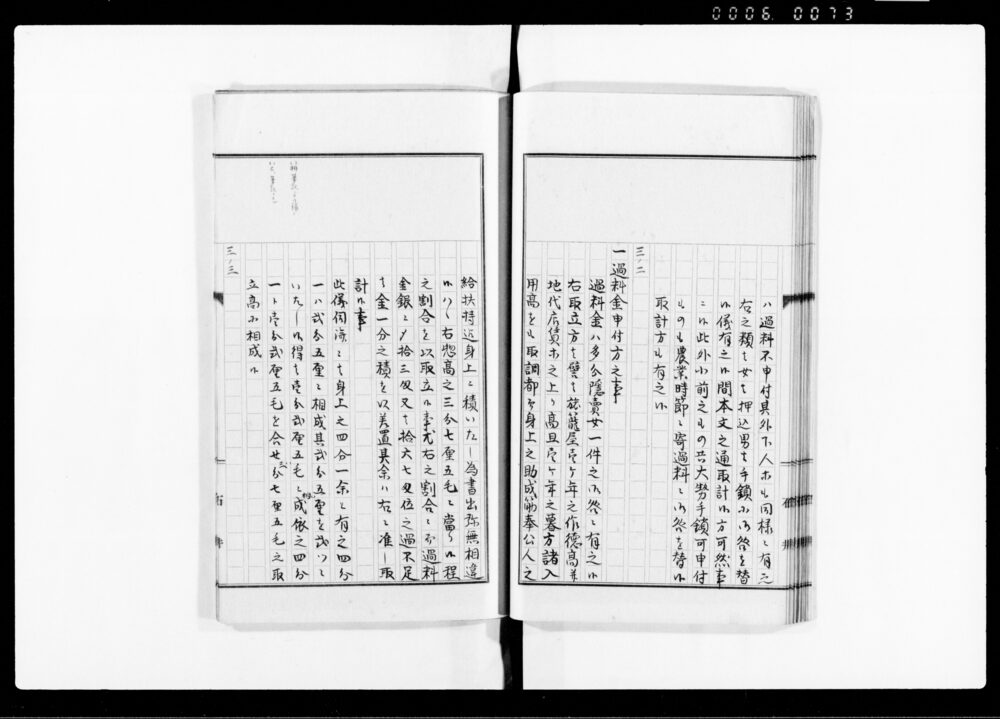 0006 0073
ハ過料不申付其外下人ホも同様ニ有之
右之類ハ女は押込男は手鎖ホ御咎を替
候儀有之候間本文之通取計候方可然事
ニ候此外小前之もの共大勢手鎖可申付
ものも農業時節ニ寄過料ニ御咎を替候
取計方も有之候
三ノ二
一過料金申付方之事
過料金ハ多分隠売女一件之御咎ニ有之候
右取立方は譬は旅籠屋壱ケ年之作徳高并
地代店賃ホ之上り高且壱ケ年之暮方諸入
用高をも取調都而身上之助成筋奉公人之
給扶持迄身上ニ積いたし為書出弥無相違
候ハヽ右惣高之三分七厘五毛ニ当り候程
之割合を以取立候事尤右之割合ニ而過料
金銀ニ夕拾三匁又は拾六七匁位之過不足
は金一分之積を以差置其余ハ右ニ准し取
計候事
此儀伺済ニは身上之四分一余ニ有之四分
一ハ弐分五厘ニ相成其弐分五厘を弐ツニ
いたし候得は壱分弐厘五毛ニ相成依之四分
一ト壱分弐厘五毛を合せ三分七厘五毛之取
立高ニ相成候
三ノ三